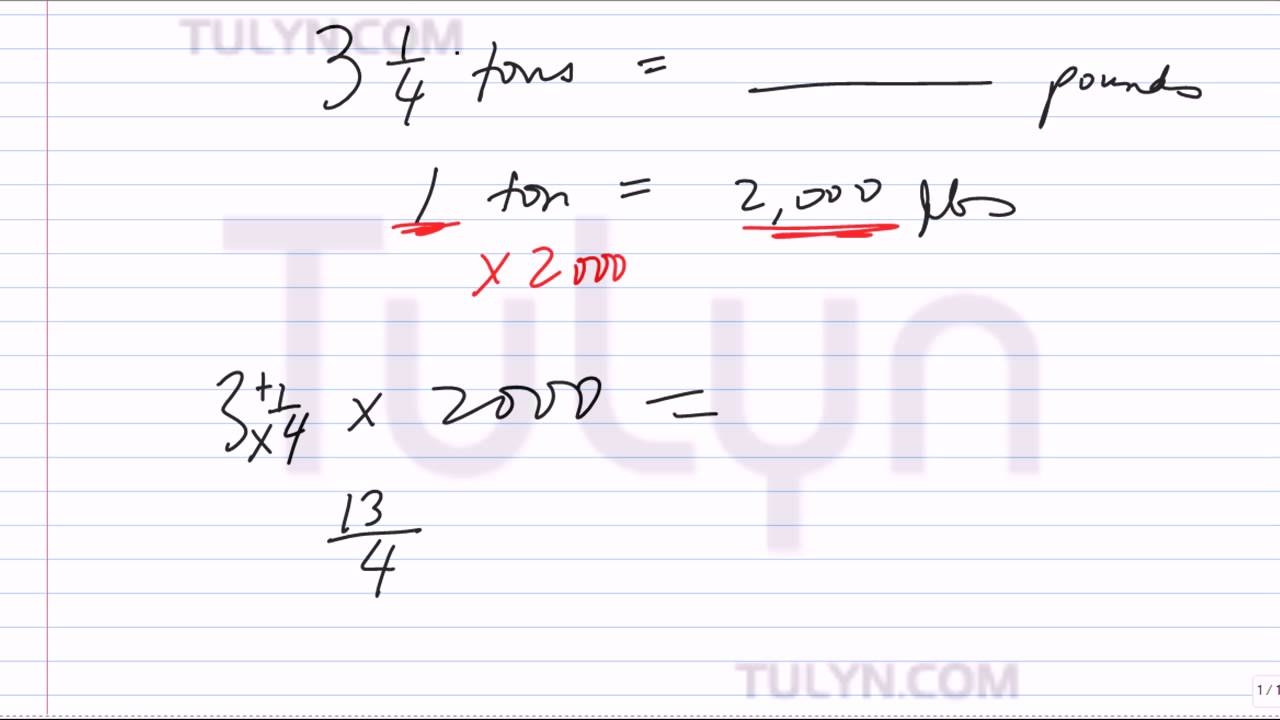 TULYN.COM
3 1/4 tons = ________ pounds
1 ton = 2,000 lbs
x 2000
Tulyn
3 +1/x4 x 2000 =
13/4
TULYN.COM
1 / 1